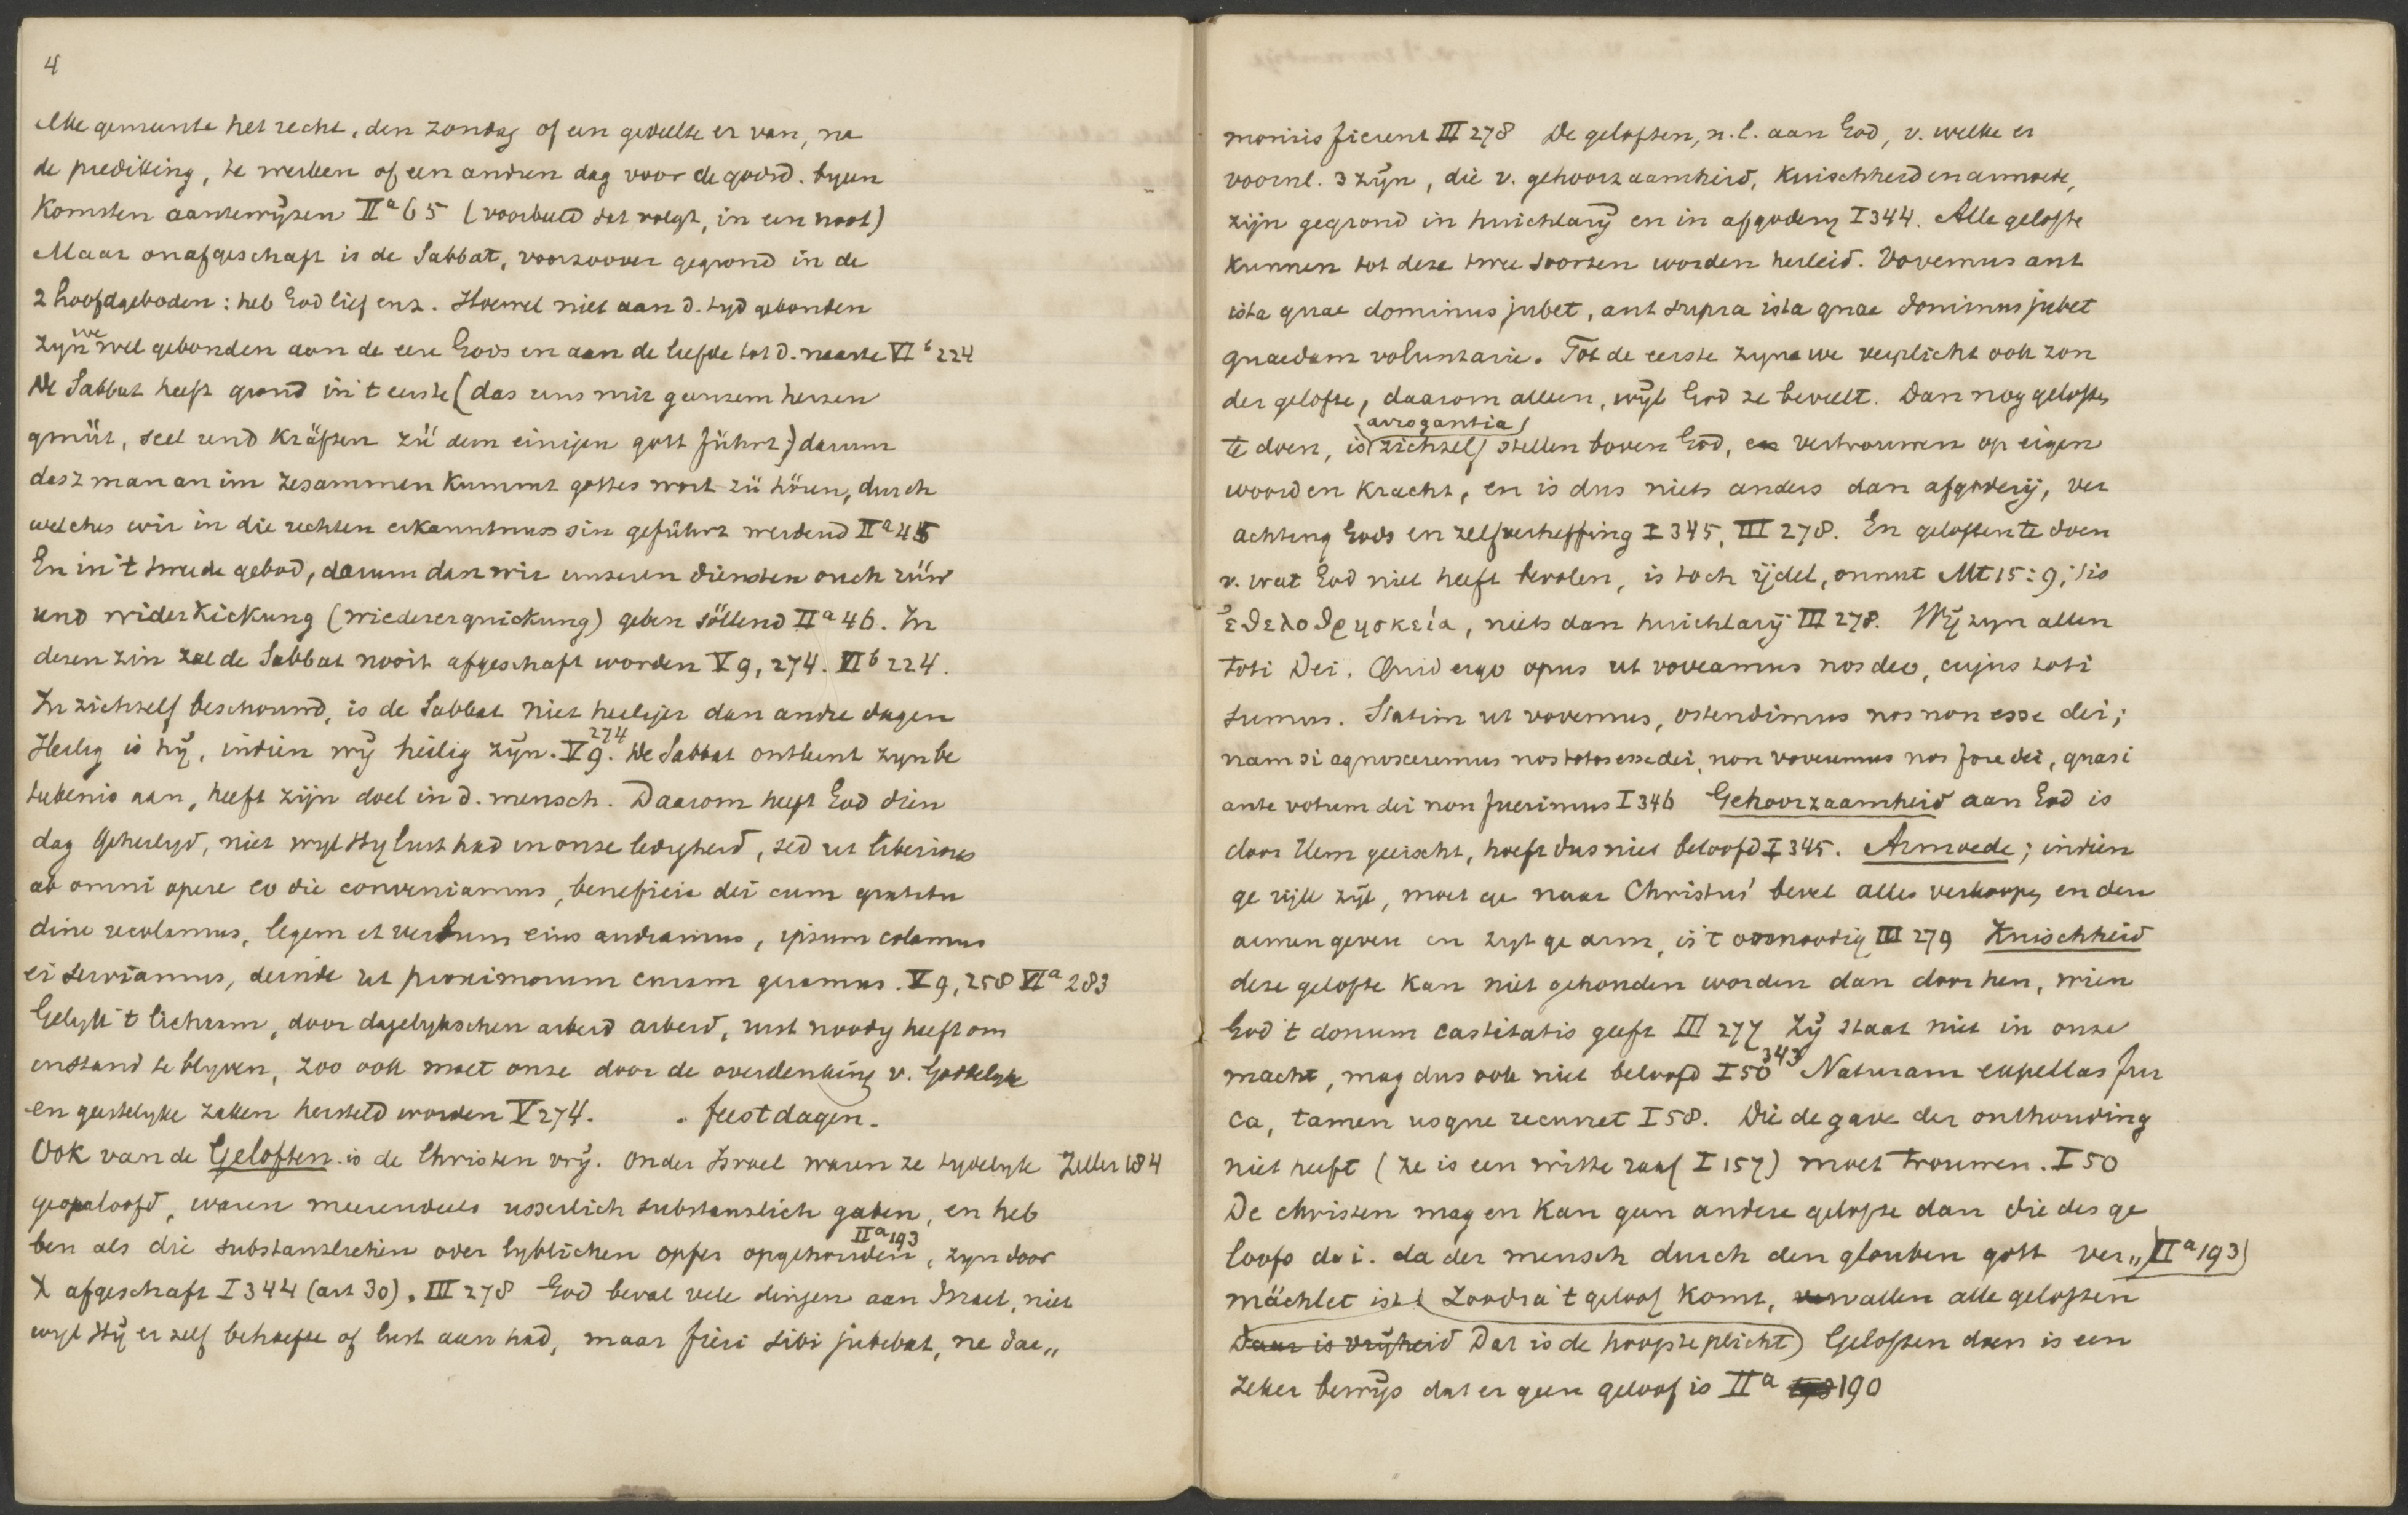 4
elke gemeente het recht, den zondag of een gedeelte er van, na
de prediking, te werken of een andren dag voor de godsd. byeen
Komsten aantewijzen IIa 65 (voorbeeld dat volgt, in een noot)
Maar onafgeschaft is de Sabbat, voorzoover gegrond in de
2 hoofdgeboden: heb God lief enz. Hoewel niet aan d. tyd gebonden
zyn we wel gebonden aan de eere Gods en aan de liefde tot d. naaste VIb 224
De Sabbat heeft grond in 't eerste (das uns mit ganzem herzen
gmüt, seel und kräften zü dem einijen gott führt) darum
dasz man an im zesammen kummt gottes wort zü hören, durch
welches wir in die rechten erkanntnuss sin geführt werdend IIa 45
En in 't tweede gebod, darum dan wir unseren diensten ouch rüw
und widerkickung (wiedererquickung) geben söllend IIa 46. In
dezen zin zal de Sabbat nooit afgeschaft worden V 9, 274. VIb 224.
In zichzelf beschouwd, is de Sabbat niet heiliger dan andre dagen
Heilig is hij, indien wij heilig zijn. V 9. 274 De Sabbat ontleent zyn be
tekenis aan, heeft zijn doel in d. mensch. Daarom heeft God dien
dag geheiligd, niet wyl Hy lust had in onze ledigheid, sed ut liberius
ab omni opere eo die conveniamus, beneficia dei cum gratitu
dine recolamus, legem et verbum eius audiamus, ipsum colamus
ei serviamus, deinde ut proximorum curam geramus. V 9, 258 VIa 283
Gelyk 't lichaam, door dagelykschen arbeid arbeid, rust noodig heeft om
instand te blyven, zoo ook moet onze door de overdenking v. Goddelyke
en geestelyke zaken hersteld worden V 274. . feestdagen.
Ook van de Geloften is de Christen vrij. Onder Israel waren ze tydelyk Zeller 184
geoorloofd, waren meerendeels usserlich substanzlich gaben, en heb
ben als die substanzlichen oder lyblichen opfer opgehouden IIa 193, zyn door
X afgeschaft I 344 (art 30). III 278 God beval vele dingen aan Israel, niet
wyl Hij er zelf behoefte of lust aan had, maar fieri sibi jubebat, ne dae„
moniis fierent III 278 De geloften, n.l. aan God, v. welke er
voornl. 3 zijn, die v. gehoorzaamheid, kuischheid en armoede,
zijn gegrond in huichlarij en in afgodery I 344. Alle gelofte
kunnen tot deze twee soorten worden herleid. Vovemus aut
ista quae dominus jubet, aut supra ista quae dominus jubet
quaedam voluntarie. Tot de eerste zyn we verplicht ook zon
der gelofte, daarom alleen, wijl God ze beveelt. Dan nog geloften
te doen, is (arrogantia) zichzelf stellen boven God, en vertrouwen op eigen
woord en kracht, en is dus niets anders dan afgoderij, ver
achting Gods en zelfverheffing I 345, III 278. En geloften te doen
v. wat God niet heeft bevolen, is toch ijdel, onnut Mt 15:9; 't is
ἐθελοθρησκεία, niets dan huichlarij III 278. Wij zyn allen
toti Dei. Quid ergo opus ut voveamus nos deo, cujus toti
sumus. Statim ut vovemus, ostendimus nos non esse dei;
nam si agnosceremus nos totos esse dei, non voveremus nos fore dei, quasi
ante votum dei non fuerimus I 346 Gehoorzaamheid aan God is
door Hem geëischt, hoeft dus niet beloofd I 345. Armoede; indien
ge rijk zijt, moet ge naar Christus' bevel alles verkoopen en den
armen geven en zyt ge arm, is 't onnoodig III 279 Kuischheid
deze gelofte kan niet gehouden worden dan door hen, wien
God 't donum castitatis geeft III 277 Zij staat niet in onze
macht, mag dus ook niet beloofd I 50 343 Naturam expellas fur
ca, tamen usque recurret I 58. Die de gave der onthouding
niet heeft (ze is een witte raaf I 157) moet trouwen. I 50
De christen mag en kan geen andere gelofte dan die des ge
loofs d.i. da der mensch durch den glouben gott ver„ IIa 193)
mächlet ist (Zoodra 't geloof komt, vallen alle geloften
Daar is vrijheid Dat is de hoogste plicht) Geloften doen is een
zeker bewijs dat er geen geloof is IIa 190